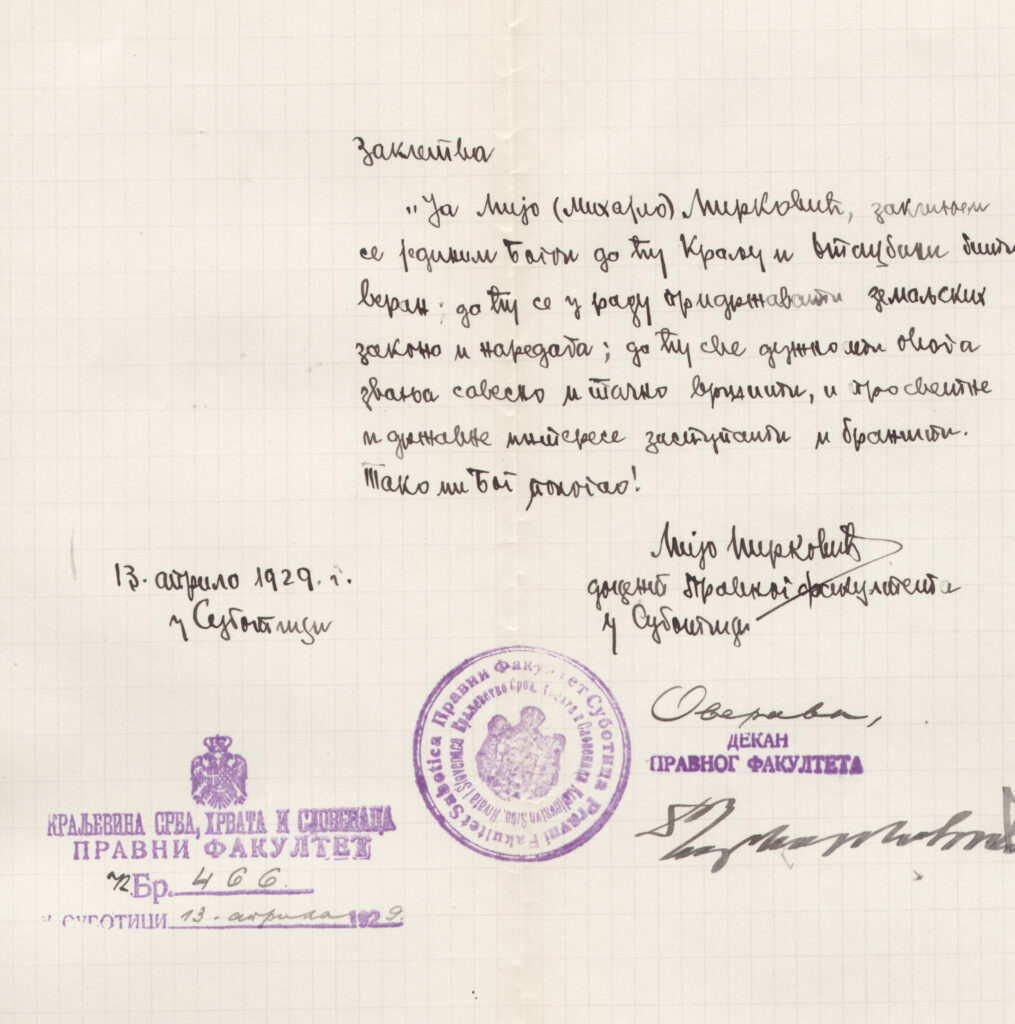 Заклетва
„Ја Мијо (Михајло) Мирковић, заклињем
се јединим Богом да ћу Краљу и отаџбини бити
веран; да ћу се у раду придржавати земаљских
закона и наредаба; да ћу све дужности овога
звања савесно и тачно вршити, и просветне
и државне интересе заступати и бранити.
Тако ми Бог помогао!
Мијо Мирковић
доцент Правног факултета
у Суботици
13. априла 1929. г.
у Суботици
Правни Факултет Суботица Pravni Fakultet Subotica
Краљевство Срба, Хрвата и Словенаца Kraljevstvo Srba, Hrvata i Slovenaca
Оверава,
ДЕКАН
ПРАВНОГ ФАКУЛТЕТА
КРАЉЕВИНА СРБА, ХРВАТА И СЛОВЕНАЦА
ПРАВНИ ФАКУЛТЕТ
Бр. 466
У СУБОТИЦИ 13. априла 1929.